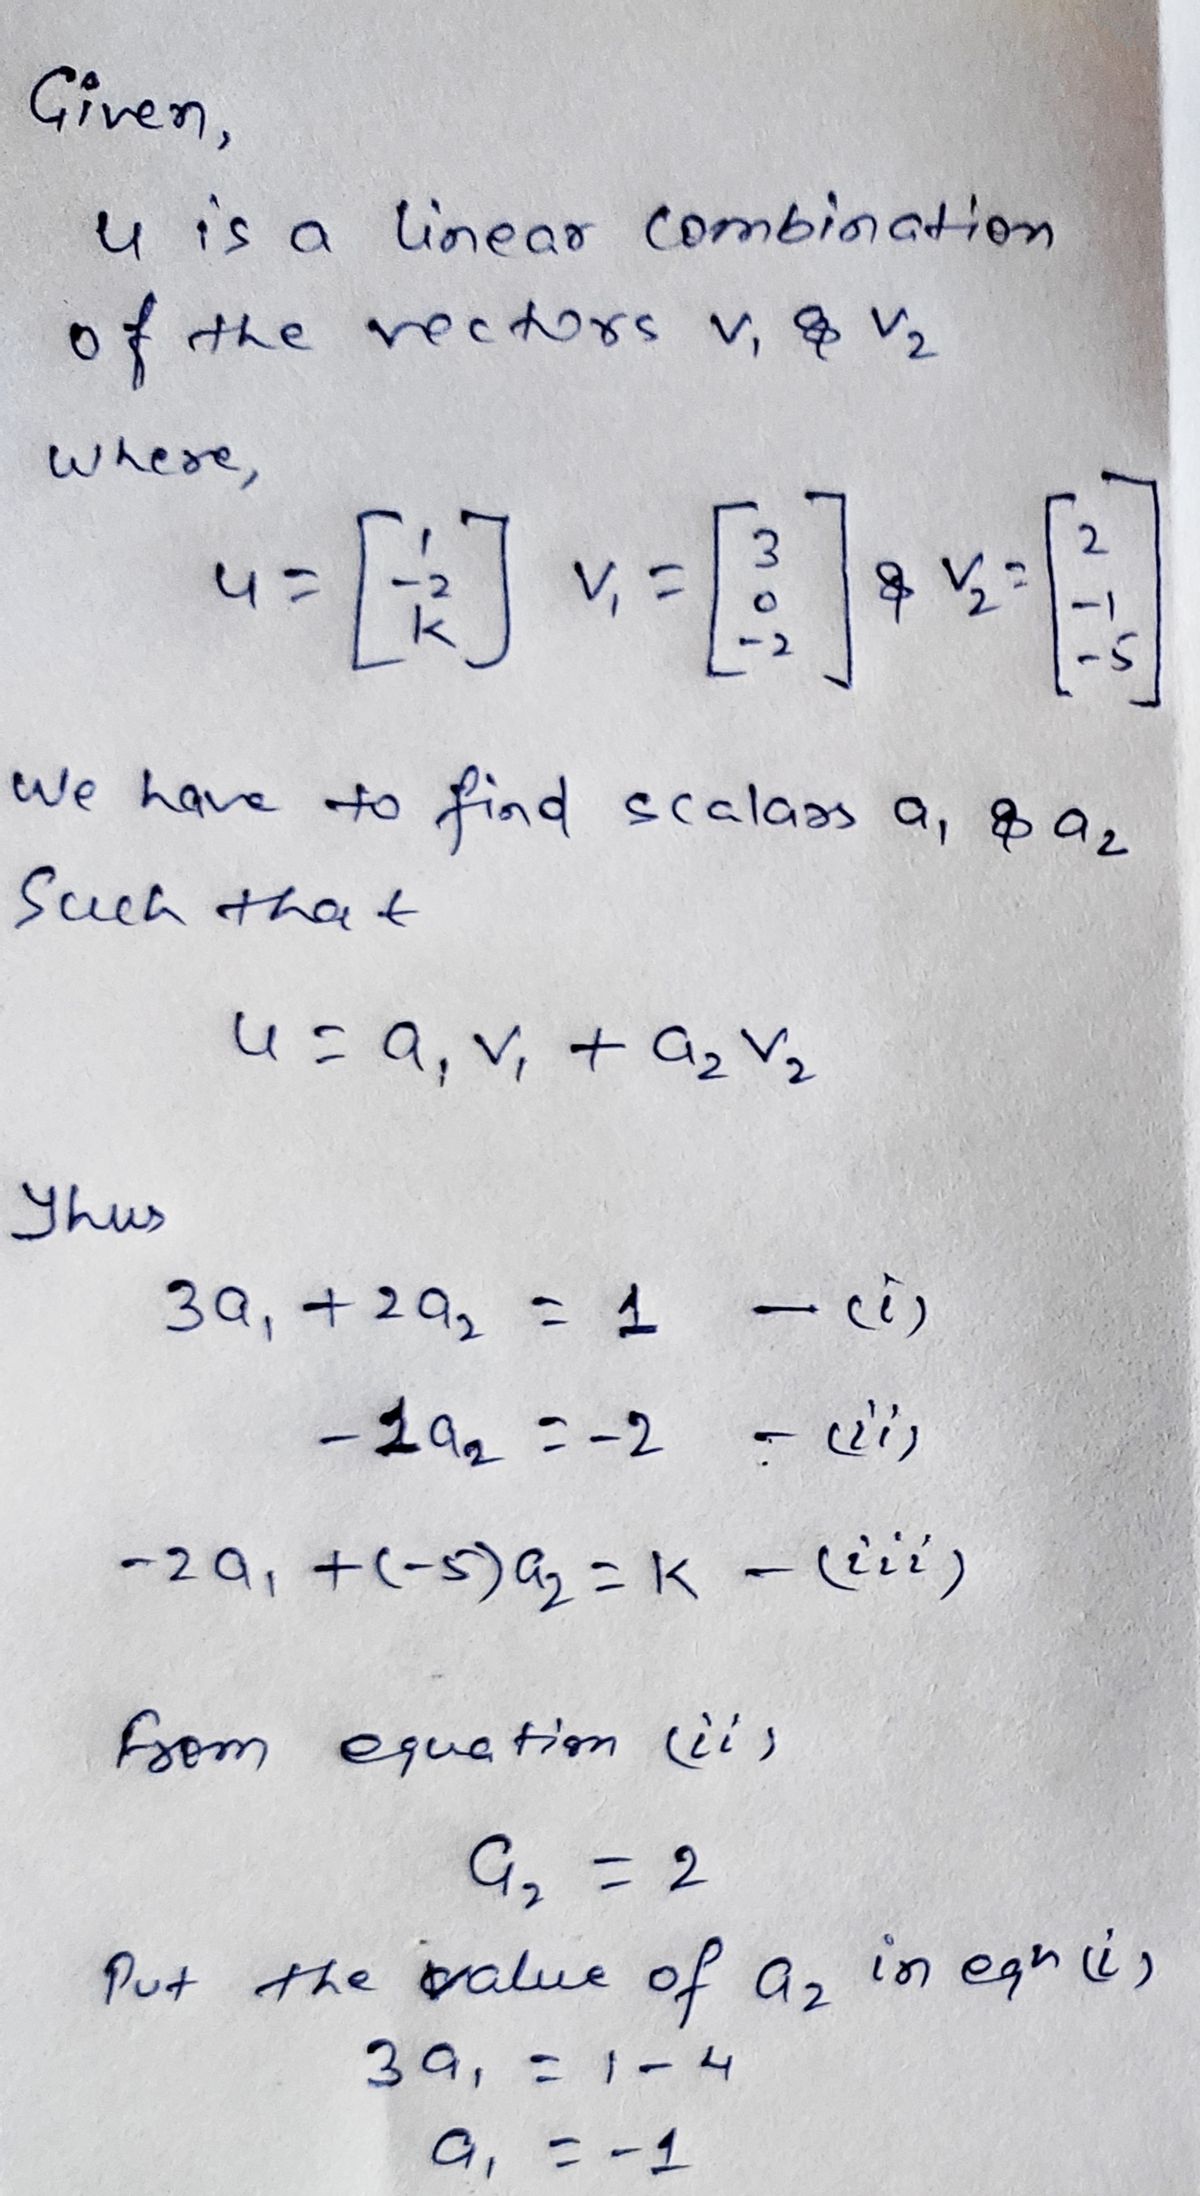 Given,
u is a linear combination
of the vectors v₁ & v₂
where,
u = [1 -2 k] v₁ = [3 0 -2] & v₂ = [2 -1 -5]
We have to find scalars a₁ & a₂
Such that
u = a₁ v₁ + a₂ v₂
Thus
3a₁ + 2a₂ = 1 — (i)
-1a₂ = -2 — (ii)
-2a₁ + (-5)a₂ = k — (iii)
from equation (ii)
a₂ = 2
Put the value of a₂ in eqn (i)
3a₁ = 1 - 4
a₁ = -1